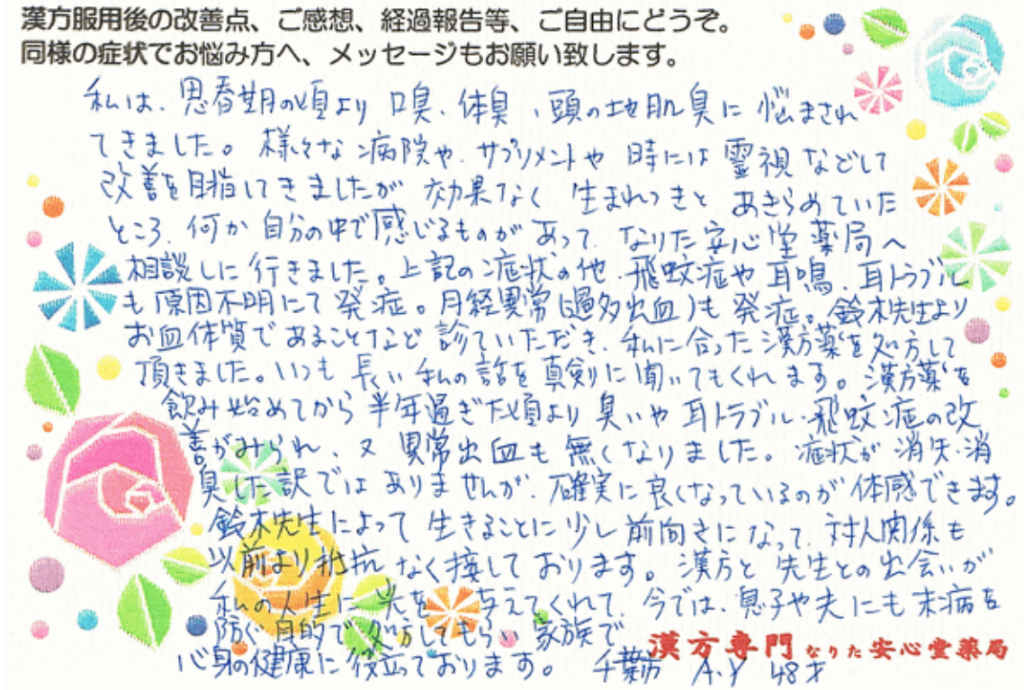 漢方服用後の改善点、ご感想、経過報告等、ご自由にどうぞ。
同様の症状でお悩み方へ、メッセージもお願い致します。
私は、思春期の頃より 口臭、体臭、頭の地肌臭に 悩まされ
てきました。様々な 病院や、サプリメントや 時には 霊視 などして
改善を目指してきましたが 効果なく 生まれつきと あきらめていた
ところ、何か 自分の中で感じるものが あって、なりた安心堂薬局へ
相談しに 行きました。上記の症状の他、飛蚊症や 耳鳴、耳トラブル
も 原因不明にて 発症。月経異常(過多出血)も 発症。鈴木先生より
お血体質で あることなど 診ていただき、私に 合った漢方薬を処方して
頂きました。いつも 長い 私の話を 真剣に 聞いてもくれます。漢方薬を
飲み始めてから 半年過ぎた頃より 臭いや 耳トラブル、飛蚊症の改
善がみられ、又 異常出血も 無くなりました。症状が 消失・消
臭した訳では ありませんが、確実に 良くなっているのが 体感できます。
鈴木先生によって 生きることに 少し前向きになって、対人関係も
以前より 抵抗 なく 接しております。漢方と 先生との出会いが
私の人生に 光を 与えてくれて、今では、息子や夫にも 未病を
防ぐ 目的で 処方してもらい 家族で
心身の健康に 役立っております。 千葉市 A.Y 48才
漢方専門 なりた 安心堂薬局